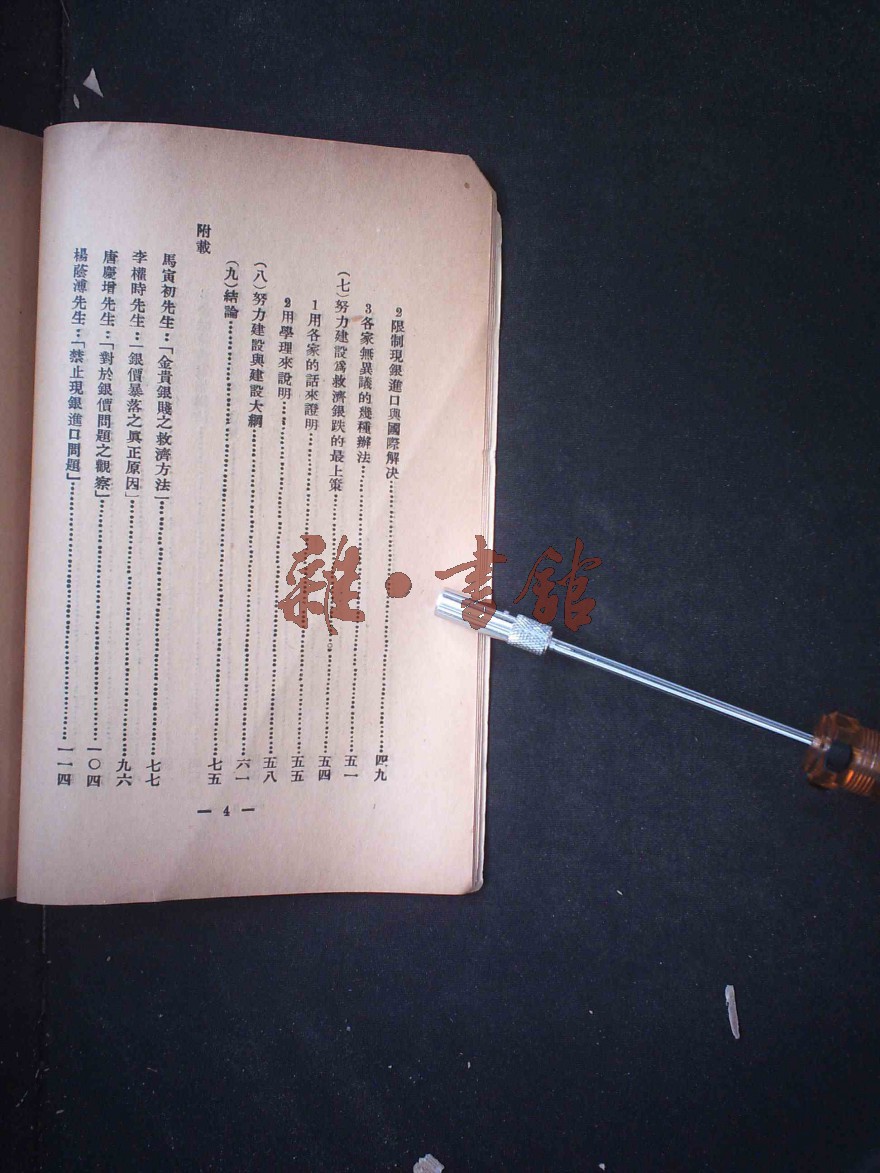 2限制現銀進口與國際解決……四九
3各家無異議的幾種辦法……五一
(七)努力建設爲救濟銀跌的最上策……五四
1用各家的話來證明……五五
2用學理來說明……五八
(八)努力建設與建設大綱……六一
(九)結論……七五
附載
馬寅初先生：「金貴銀賤之救濟方法」……七七
李權時先生：「銀價暴落之眞正原因」……九六
唐慶增先生：「對於銀價問題之觀察」……一〇四
楊蔭溥先生：「禁止現銀進口問題」……一一四
— 4 —
雜·書館